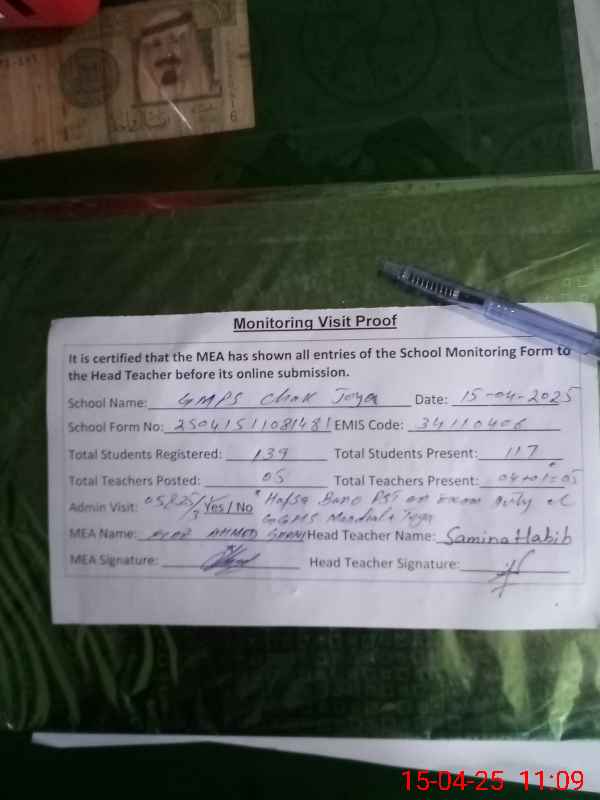 Monitoring Visit Proof
It is certified that the MEA has shown all entries of the School Monitoring Form to
the Head Teacher before its online submission.
School Name: GMPS Chak Joya Date: 15-04-2025
School Form No: 25041511081481 EMIS Code: 34110406
Total Students Registered: 139 Total Students Present: 117
Total Teachers Posted: 05 Total Teachers Present: 04+01=05
Admin Visit: Yes / No * Hafsa Bano PST on exam duty at
GGHS Joya
MEA Name: AHMED Head Teacher Name: Samina Habib
MEA Signature: Head Teacher Signature:
15-04-25 11:09